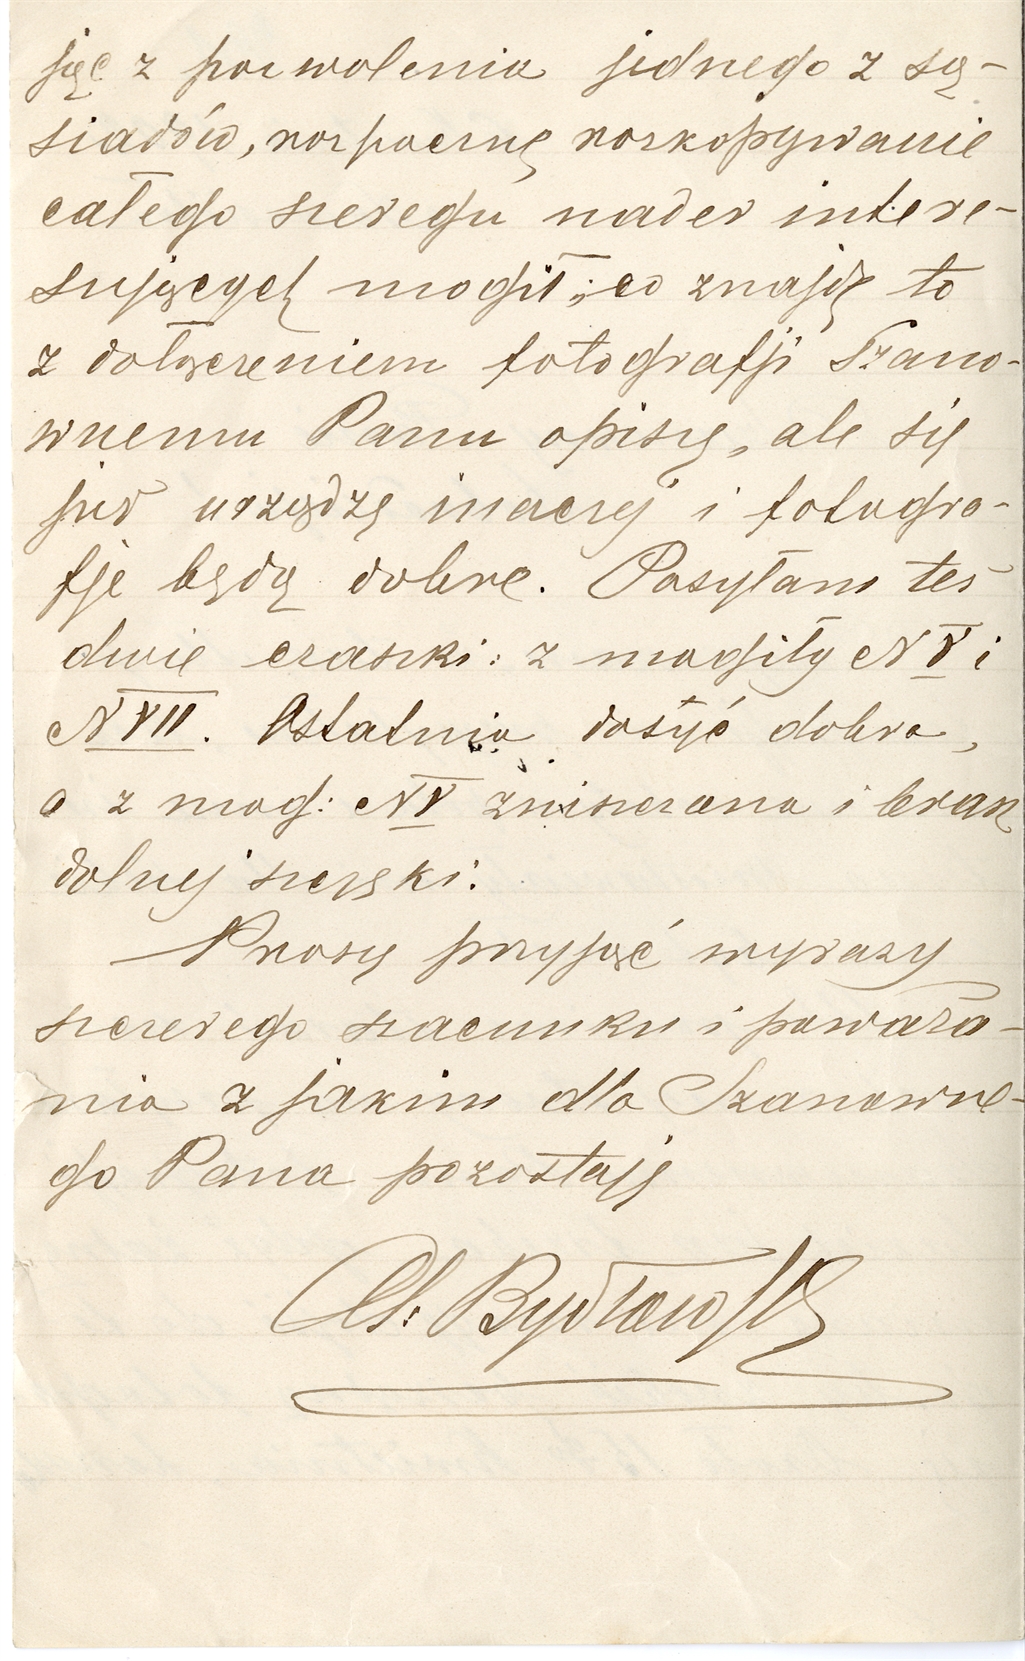 jąc z pozwolenia jednego z są-
siadów, rozpocznę rozkopywanie
całego szeregu nader intere-
sujących mogił; co znajdę to
z dołączeniem fotografji Szano-
wnemu Panu opiszę, ale się
już urządzę inaczej i fotogra-
fje będą dobre. Posyłam też
dwie czaszki: z mogiły N V i
N VII. Ostatnia dosyć dobra,
a z mog: N V zniszczona i brak
dolnej szczęki.
Proszę przyjąć wyrazy
szczerego szacunku i poważa-
nia z jakim dla Szanowne-
go Pana pozostaję
A. Bydłowski